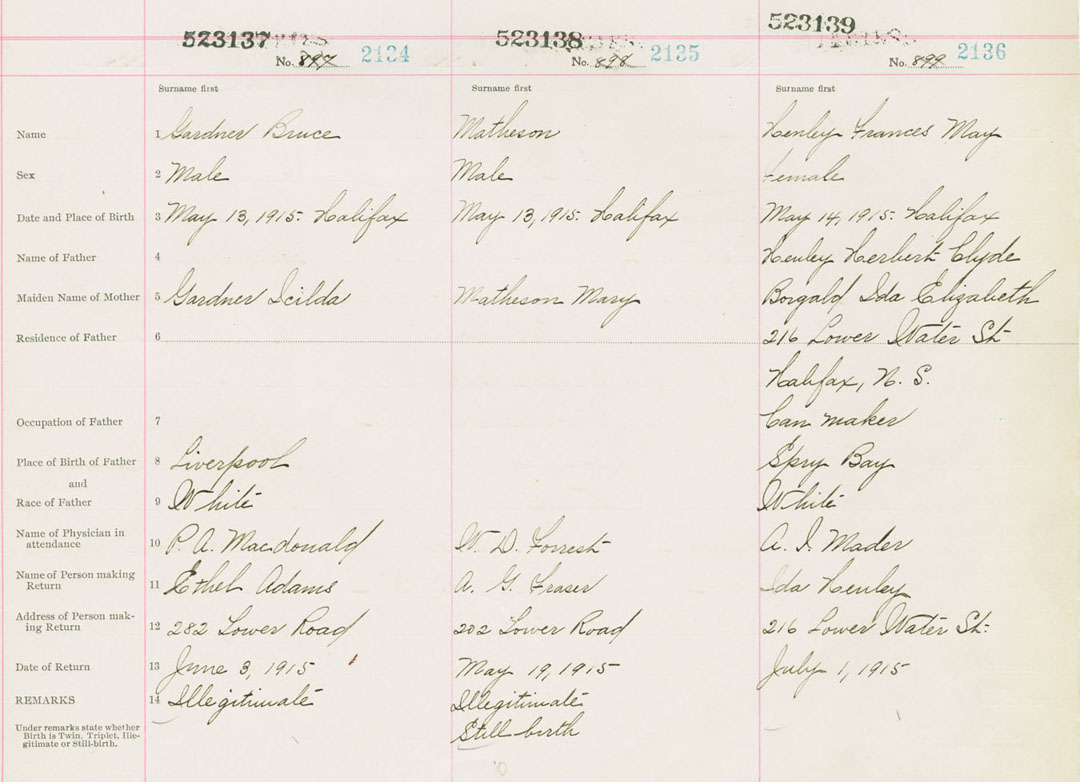 523137 523138 523139
No. 897 2134 No. 898 2135 No. 899 2136
Surname first Surname first Surname first
Name 1 Gardner Bruce Matheson Henley Frances May
Sex 2 Male Male Female
Date and Place of Birth 3 May 13, 1915. Halifax May 13, 1915. Halifax May 14, 1915. Halifax
Name of Father 4 Henley Herbert Clyde
Maiden Name of Mother 5 Gardner Icilda Matheson Mary Borgald Ida Elizabeth
Residence of Father 6 216 Lower Water St
Halifax, N. S.
Occupation of Father 7 Can maker
Place of Birth of Father 8 Liverpool Spry Bay
and
Race of Father 9 White White
Name of Physician in
attendance 10 P. A. Macdonald W. D. Forrest A. I. Mader
Name of Person making
Return 11 Ethel Adams A. G. Fraser Ida Henley
Address of Person mak-
ing Return 12 282 Lower Road 202 Lower Road 216 Lower Water St.
Date of Return 13 June 3, 1915 May 19, 1915 July 1, 1915
REMARKS 14 Illegitimate Illegitimate
Under remarks state whether Still-birth
Birth is Twin, Triplet, Ille-
gitimate or Still-birth.